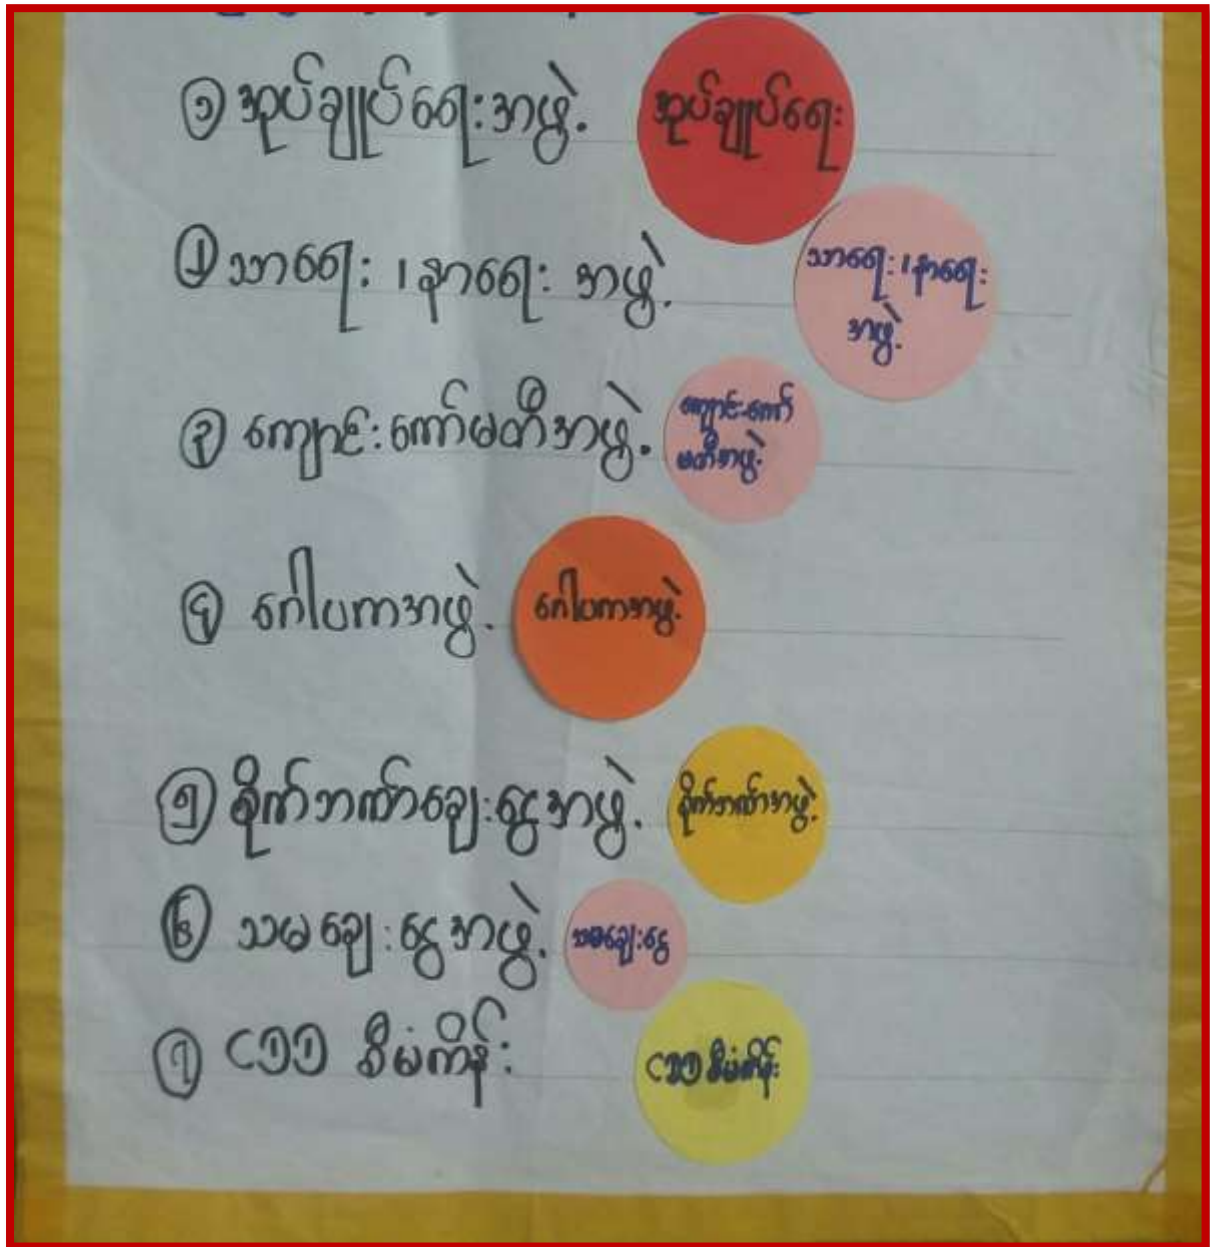 ၁ အုပ်ချုပ်ရေးအဖွဲ့
အုပ်ချုပ်ရေး
၂ သာရေး၊နာရေး အဖွဲ့
သာရေး၊နာရေး
အဖွဲ့
၃ ကျောင်းကော်မတီအဖွဲ့
ကျောင်းကော်
မတီအဖွဲ့
၄ ဂေါပကအဖွဲ့
ဂေါပကအဖွဲ့
၅ စိုက်ဘဏ်ချေးငွေအဖွဲ့
စိုက်ဘဏ်အဖွဲ့
၆ သမချေးငွေအဖွဲ့
သမချေးငွေ
၇ CDD စီမံကိန်း
CDD စီမံကိန်း